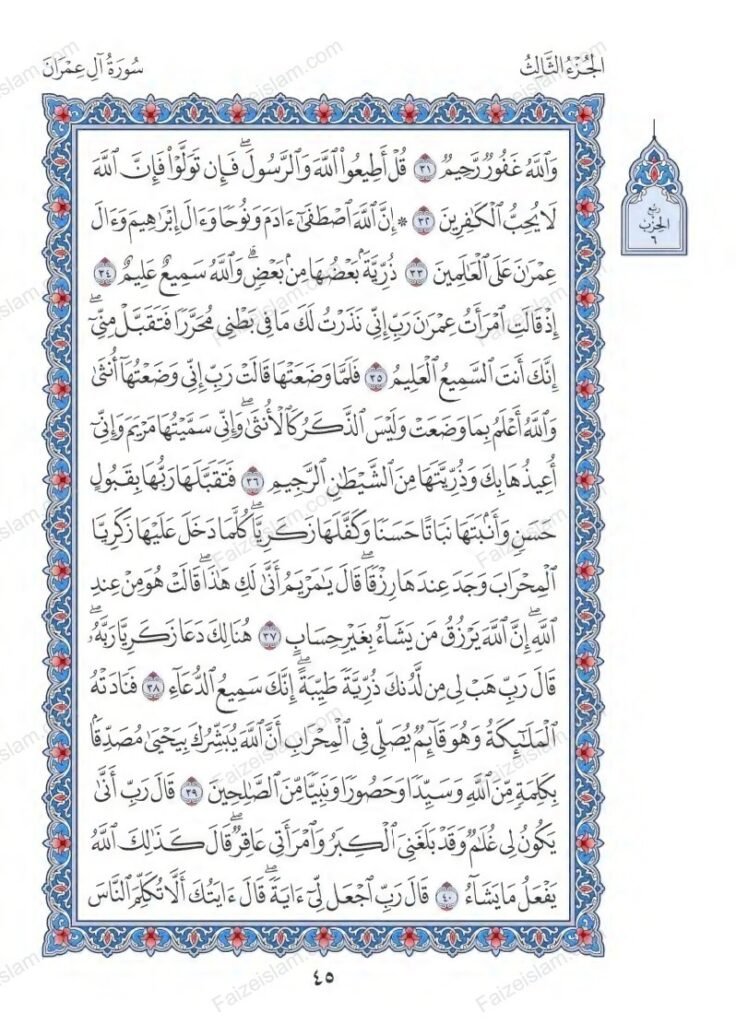 الجُزْءُ الثَّالِثُ
سُورَةُ آلِ عِمْرَانَ
وَٱللَّهُ غَفُورٌ رَّحِيمٌ ٣١ قُلْ أَطِيعُوا۟ ٱللَّهَ وَٱلرَّسُولَ ۖ فَإِن تَوَلَّوْا۟ فَإِنَّ ٱللَّهَ
لَا يُحِبُّ ٱلْكَٰفِرِينَ ٣٢ * إِنَّ ٱللَّهَ ٱصْطَفَىٰٓ ءَادَمَ وَنُوحًا وَءَالَ إِبْرَٰهِيمَ وَءَالَ
عِمْرَٰنَ عَلَى ٱلْعَٰلَمِينَ ٣٣ ذُرِّيَّةًۢ بَعْضُهَا مِنۢ بَعْضٍ ۗ وَٱللَّهُ سَمِيعٌ عَلِيمٌ ٣٤
إِذْ قَالَتِ ٱمْرَأَتُ عِمْرَٰنَ رَبِّ إِنِّى نَذَرْتُ لَكَ مَا فِى بَطْنِى مُحَرَّرًا فَتَقَبَّلْ مِنِّىٓ ۖ
إِنَّكَ أَنتَ ٱلسَّمِيعُ ٱلْعَلِيمُ ٣٥ فَلَمَّا وَضَعَتْهَا قَالَتْ رَبِّ إِنِّى وَضَعْتُهَآ أُنثَىٰ
وَٱللَّهُ أَعْلَمُ بِمَا وَضَعَتْ وَلَيْسَ ٱلذَّكَرُ كَٱلْأُنثَىٰ ۖ وَإِنِّى سَمَّيْتُهَا مَرْيَمَ وَإِنِّىٓ
أُعِيذُهَا بِكَ وَذُرِّيَّتَهَا مِنَ ٱلشَّيْطَٰنِ ٱلرَّجِيمِ ٣٦ فَتَقَبَّلَهَا رَبُّهَا بِقَبُولٍ
حَسَنٍ وَأَنۢبَتَهَا نَبَاتًا حَسَنًا وَكَفَّلَهَا زَكَرِيَّا ۖ كُلَّمَا دَخَلَ عَلَيْهَا زَكَرِيَّا
ٱلْمِحْرَابَ وَجَدَ عِندَهَا رِزْقًا ۖ قَالَ يَٰمَرْيَمُ أَنَّىٰ لَكِ هَٰذَا ۖ قَالَتْ هُوَ مِنْ عِندِ
ٱللَّهِ ۖ إِنَّ ٱللَّهَ يَرْزُقُ مَن يَشَآءُ بِغَيْرِ حِسَابٍ ٣٧ هُنَالِكَ دَعَا زَكَرِيَّا رَبَّهُۥ ۖ
قَالَ رَبِّ هَبْ لِى مِن لَّدُنكَ ذُرِّيَّةً طَيِّبَةً ۖ إِنَّكَ سَمِيعُ ٱلدُّعَآءِ ٣٨ فَنَادَتْهُ
ٱلْمَلَٰٓئِكَةُ وَهُوَ قَآئِمٌ يُصَلِّى فِى ٱلْمِحْرَابِ أَنَّ ٱللَّهَ يُبَشِّرُكَ بِيَحْيَىٰ مُصَدِّقًۢا
بِكَلِمَةٍ مِّنَ ٱللَّهِ وَسَيِّدًا وَحَصُورًا وَنَبِيًّا مِّنَ ٱلصَّٰلِحِينَ ٣٩ قَالَ رَبِّ أَنَّىٰ
يَكُونُ لِى غُلَٰمٌ وَقَدْ بَلَغَنِىَ ٱلْكِبَرُ وَٱمْرَأَتِى عَاقِرٌ ۖ قَالَ كَذَٰلِكَ ٱللَّهُ
يَفْعَلُ مَا يَشَآءُ ٤٠ قَالَ رَبِّ ٱجْعَل لِّىٓ ءَايَةً ۖ قَالَ ءَايَتُكَ أَلَّا تُكَلِّمَ ٱلنَّاسَ
رُبْع
الحِزْب
٦
٤٥
Faizeislam.com